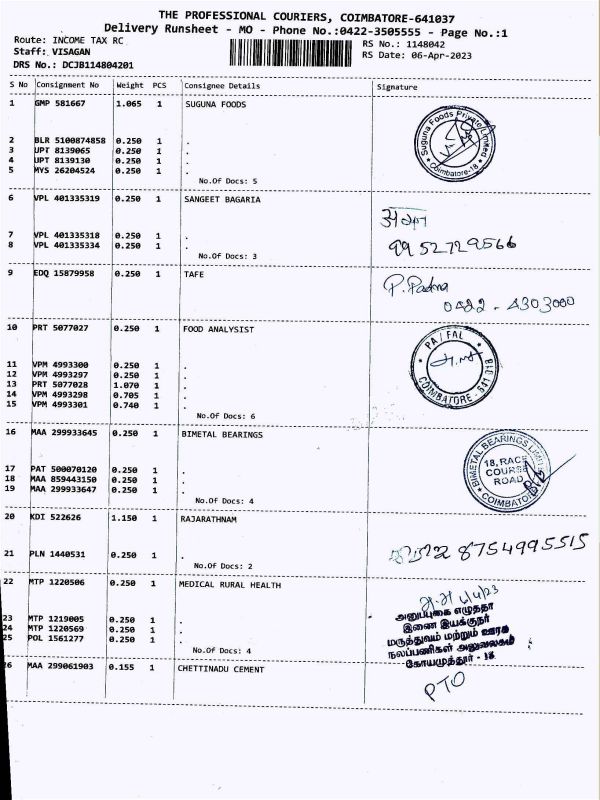 THE PROFESSIONAL COURIERS, COIMBATORE-641037
Delivery Runsheet - MO - Phone No.:0422-3505555 - Page No.:1
Route: INCOME TAX RC
RS No.: 1148042
Staff: VISAGAN
RS Date: 06-Apr-2023
DRS No.: DCJB114804201
S No Consignment No Weight PCS Consignee Details Signature
1 GMP 581667 1.065 1 SUGUNA FOODS
Suguna Foods Private Limited
* Coimbatore-18 *
2 BLR 5100874858 0.250 1 .
3 UPT 8139065 0.250 1 .
4 UPT 8139130 0.250 1 .
5 MYS 26204524 0.250 1 .
No.Of Docs: 5
6 VPL 401335319 0.250 1 SANGEET BAGARIA
7 VPL 401335318 0.250 1 .
8 VPL 401335334 0.250 1 .
9952729566
No.Of Docs: 3
9 EDQ 15879958 0.250 1 TAFE
P. Padma
0422 - 4303000
10 PRT 5077027 0.250 1 FOOD ANALYSIST
PA / FAL
COIMBATORE - 641 018
11 VPM 4993300 0.250 1 .
12 VPM 4993297 0.250 1 .
13 PRT 5077028 1.070 1 .
14 VPM 4993298 0.705 1 .
15 VPM 4993301 0.740 1 .
No.Of Docs: 6
16 MAA 299933645 0.250 1 BIMETAL BEARINGS
BIMETAL BEARINGS LIMITED
18, RACE
COURSE
ROAD
COIMBATORE
17 PAT 500070120 0.250 1 .
18 MAA 859443150 0.250 1 .
19 MAA 299933647 0.250 1 .
No.Of Docs: 4
20 KDI 522626 1.150 1 RAJARATHNAM
21 PLN 1440531 0.250 1 .
8754995515
No.Of Docs: 2
22 MTP 1220506 0.250 1 MEDICAL RURAL HEALTH
6/4/23
இணை இயக்குநர்
மருத்துவம் மற்றும் ஊரக
நலப்பணிகள் அலுவலகம்
கோயமுத்தூர் - 18
23 MTP 1219005 0.250 1 .
24 MTP 1220569 0.250 1 .
25 POL 1561277 0.250 1 .
No.Of Docs: 4
26 MAA 299061903 0.155 1 CHETTINADU CEMENT
PTO